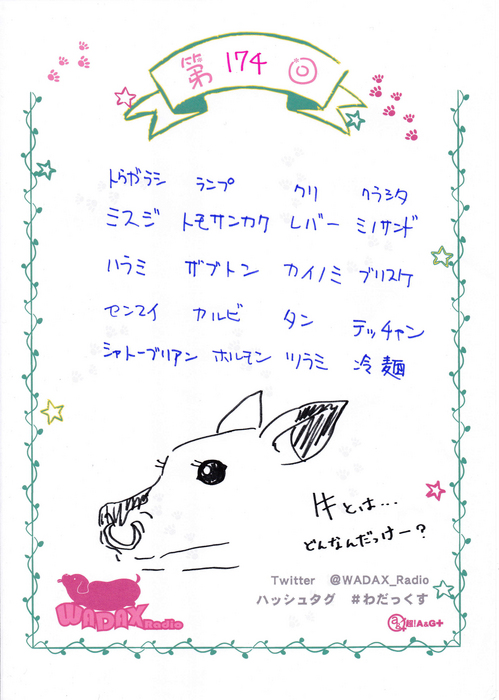 第 174 回
トウガラシ ランプ クリ クラシタ
ミスジ トモサンカク レバー ミノサンド
ハラミ ザブトン カイノミ ブリスケ
センマイ カルビ タン テッチャン
シャトーブリアン ホルモン ツラミ 冷麺
牛とは…
どんなんだっけー?
Twitter @WADAX_Radio
ハッシュタグ #わだっくす
WADAX Radio
超!A&G+